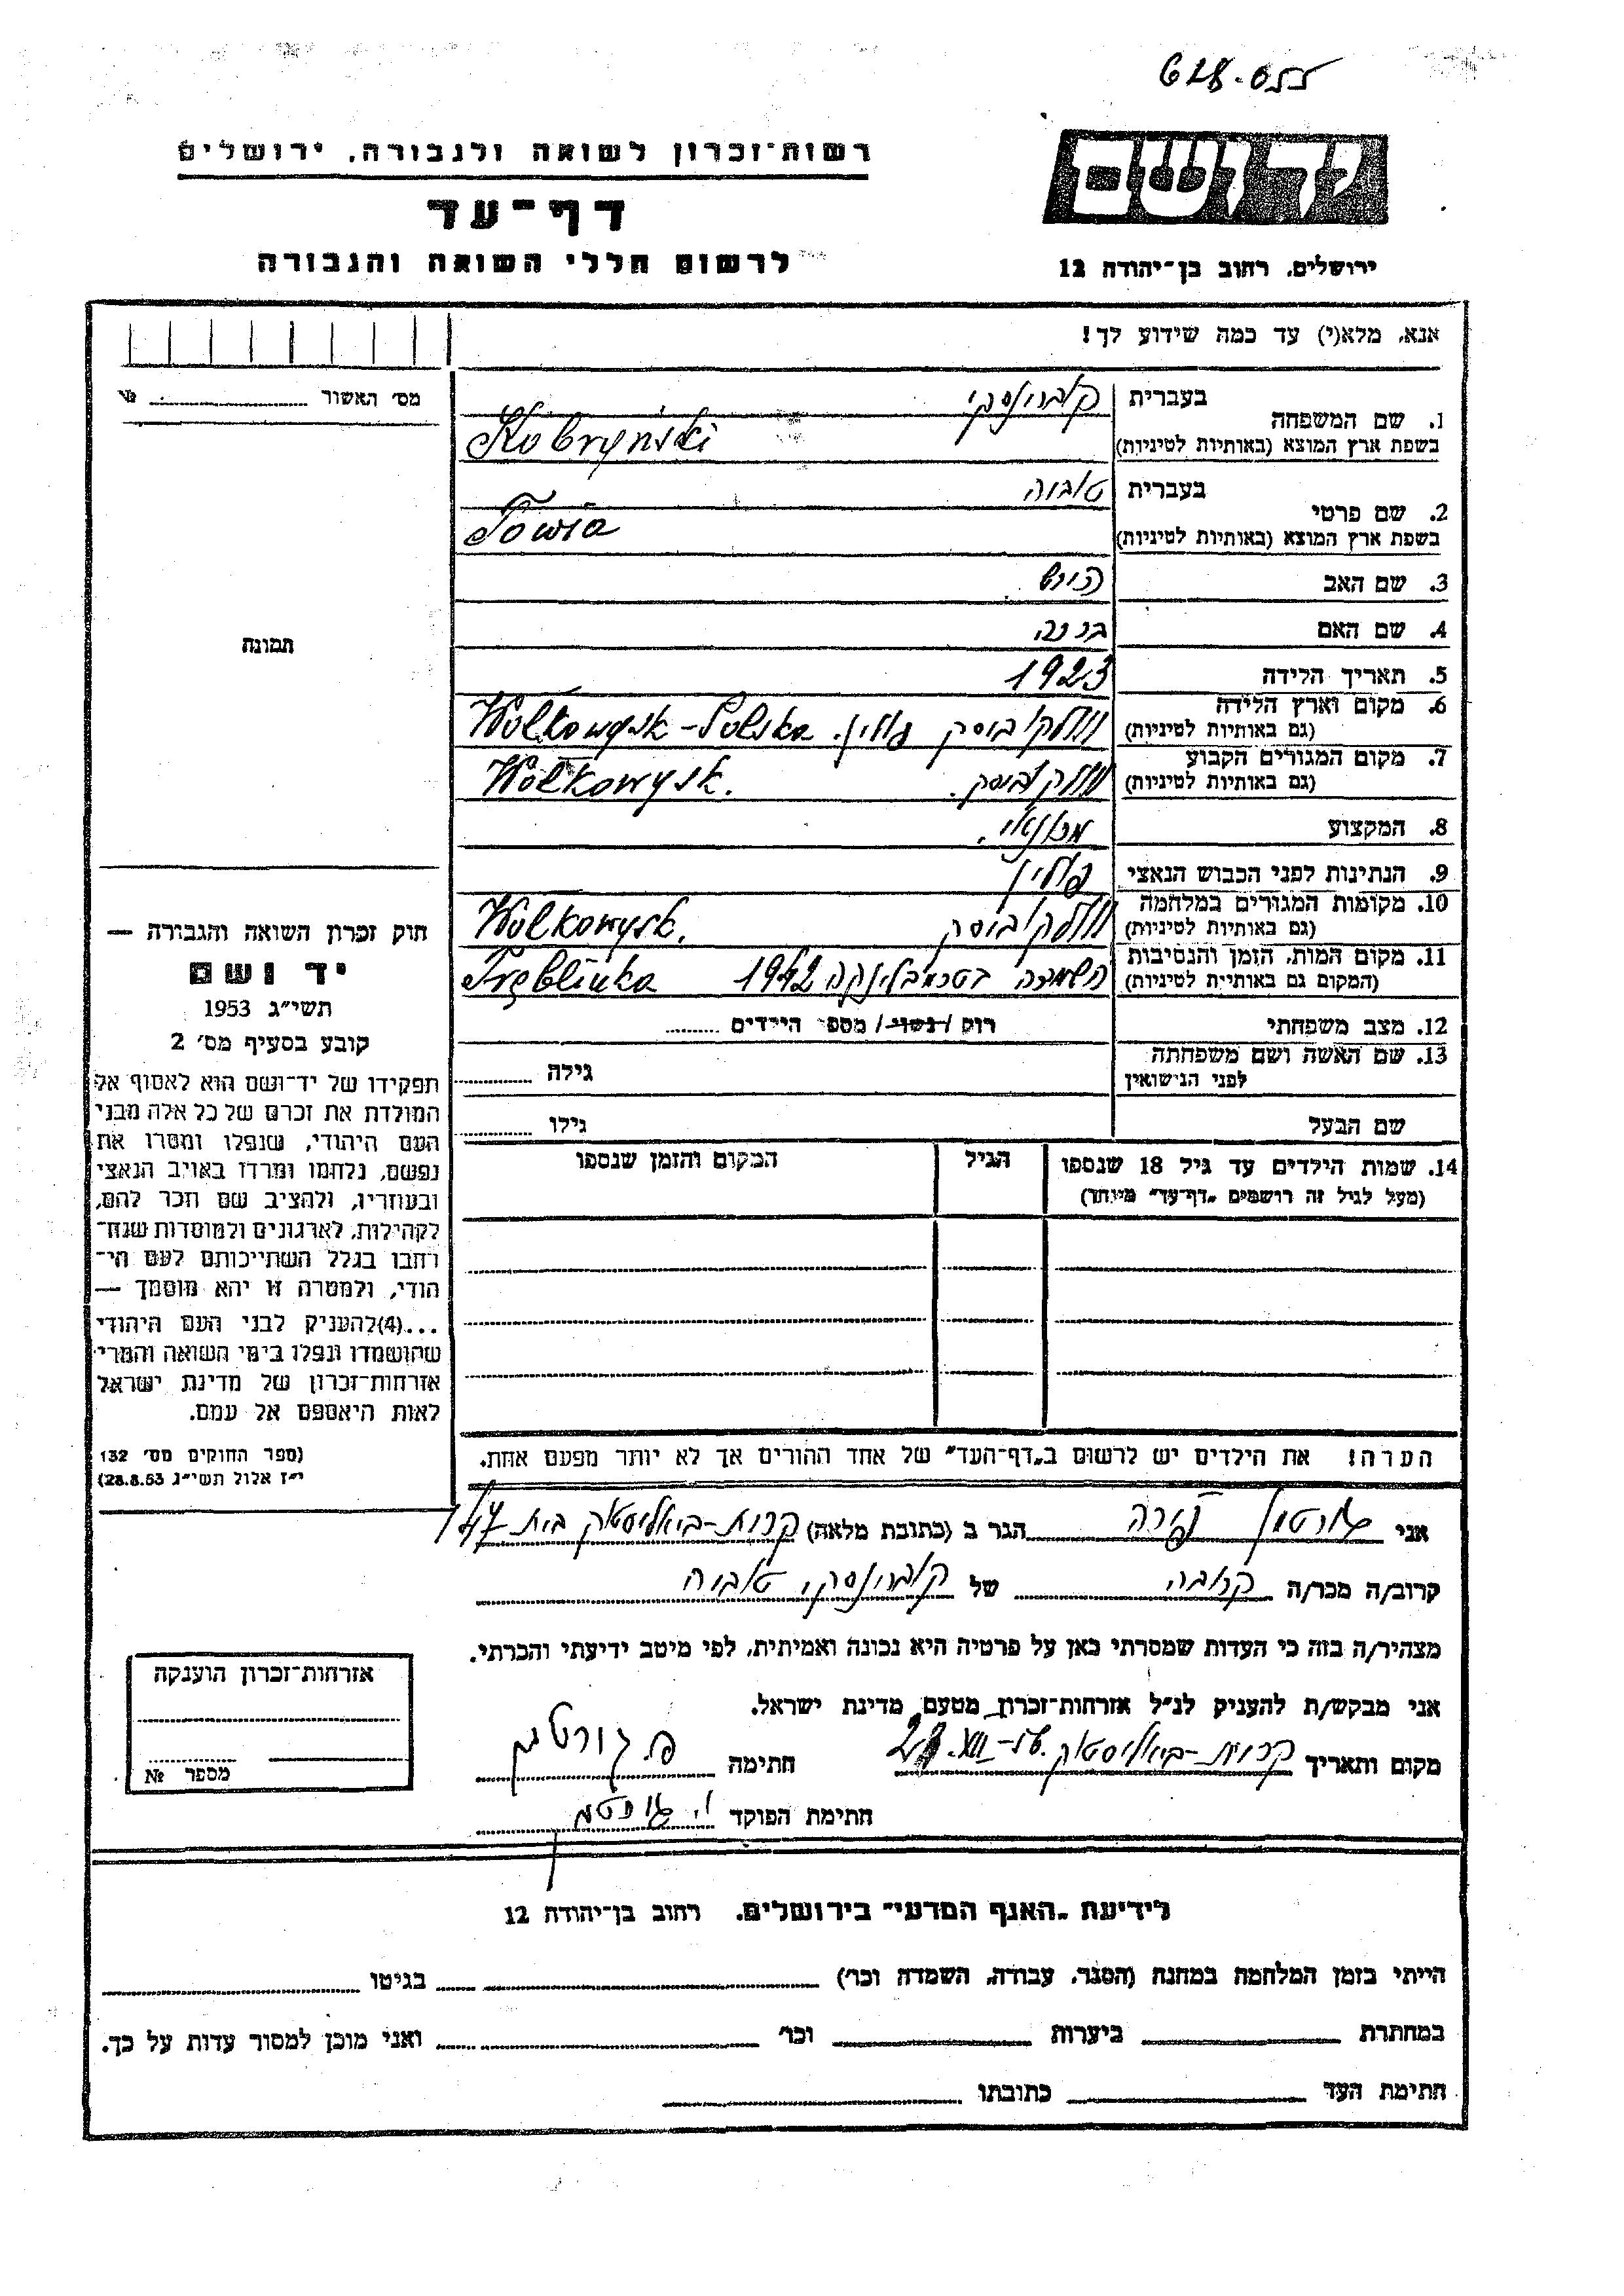 628-055
רשות־זכרון לשואה ולגבורה, ירושלים
ידושם
דף־עד
לרשום חללי השואה והגבורה
ירושלים, רחוב בן־יהודה 12
אנא, מלא(י) עד כמה שידוע לך!
מס׳ האשור №
1. שם המשפחה בעברית קוברינסקי
בשפת ארץ המוצא (באותיות לטיניות) Kobryński
2. שם פרטי בעברית טוביה
בשפת ארץ המוצא (באותיות לטיניות) Towia
3. שם האב
4. שם האם
5. תאריך הלידה 1923
6. מקום וארץ הלידה וולקוביסק פולין. Wołkowysk-Polska
(גם באותיות לטיניות)
7. מקום המגורים הקבוע וולקוביסק. Wołkowysk.
(גם באותיות לטיניות)
8. המקצוע מכונאי.
9. הנתינות לפני הכבוש הנאצי פולין
10. מקומות המגורים במלחמה וולקוביסק Wołkowysk.
(גם באותיות לטיניות)
11. מקום המות, הזמן והנסיבות בטרבלינקה 1942 Treblinka
(המקום גם באותיות לטיניות)
12. מצב משפחתי רוק / נשוי / מספר הילדים
13. שם האשה ושם משפחתה גילה
לפני הנישואין
שם הבעל גילו
14. שמות הילדים עד גיל 18 שנספו הגיל המקום והזמן שנספו
(מעל לגיל זה רושמים „דף־עד״ מיוחד)
הערה! את הילדים יש לרשום ב„דף־העד״ של אחד ההורים אך לא יותר מפעם אחת.
תמונה
חוק זכרון השואה והגבורה —
יד ושם
תשי״ג 1953
קובע בסעיף מס׳ 2
תפקידו של יד־ושם הוא לאסוף אל
המולדת את זכרם של כל אלה מבני
העם היהודי, שנפלו ומסרו את
נפשם, נלחמו ומרדו באויב הנאצי
ובעוזריו, ולהציב שם וזכר להם,
לקהילות, לארגונים ולמוסדות שנח־
רבו בגלל השתייכותם לעם הי־
הודי, ולמטרה זו יהא מוסמך —
...(4)להעניק לבני העם היהודי
שהושמדו ונפלו בימי השואה והמרי
אזרחות־זכרון של מדינת ישראל
לאות היאספם אל עמם.
(ספר החוקים מס׳ 132
י״ז אלול תשי״ג 28.8.53)
אני גורטמן הגר ב (כתובת מלאה) קרית-ביאליסטוק בית 47/1
קרוב/ה מכר/ה קרובה של קוברינסקי טוביה
מצהיר/ה בזה כי העדות שמסרתי כאן על פרטיה היא נכונה ואמיתית, לפי מיטב ידיעתי והכרתי.
אני מבקש/ת להעניק לנ״ל אזרחות־זכרון מטעם מדינת ישראל.
מקום ותאריך קרית-ביאליסטוק חתימה פ. גורטמן
חתימת הפוקד
אזרחות־זכרון הוענקה
מספר №
לידיעת „האגף המדעי״ בירושלים, רחוב בן־יהודה 12
הייתי בזמן המלחמה במחנה (הסגר, עבודה, השמדה וכו׳) בגיטו
במחתרת ביערות וכו׳ ואני מוכן למסור עדות על כך.
חתימת העד כתובתו